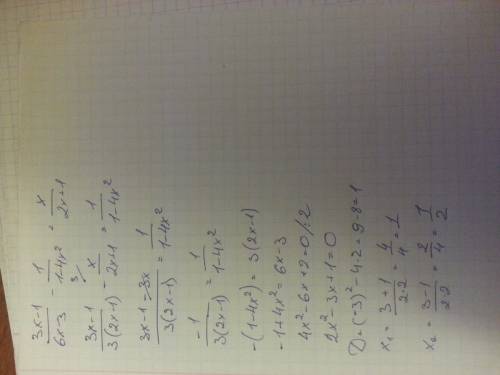 (3x-1)/(6x-3) - 1/(1-4x²) = x/(2x+1)
(3x-1)/(3(2x-1)) - x/(2x+1) = 1/(1-4x²)
(3x-1-3x)/(3(2x-1)) = 1/(1-4x²)
-1/(3(2x-1)) = 1/(1-4x²)
-(1-4x²) = 3(2x-1)
-1+4x² = 6x-3
4x²-6x+2=0/:2
2x²-3x+1=0
D=(-3)²-4·2=9-8=1
x₁ = (3+1)/(2·2) = 4/4 = 1
x₂ = (3-1)/(2·2) = 2/4 = 1/2